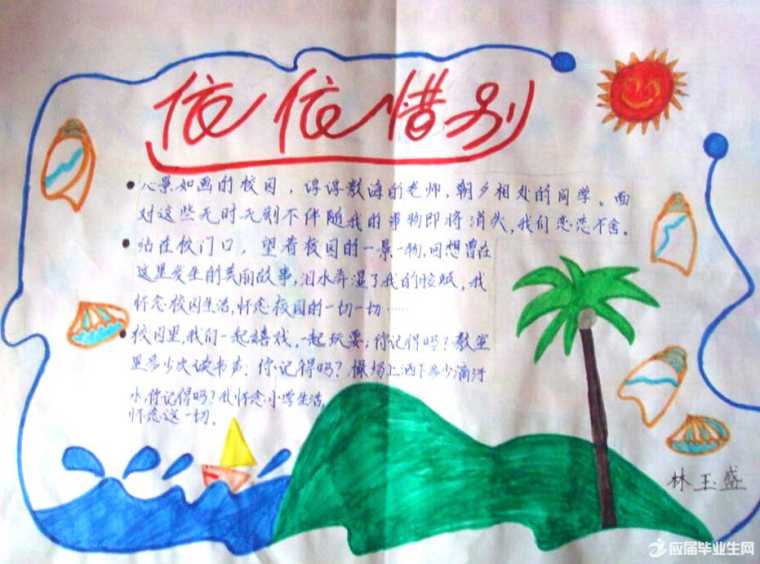 依依惜别
•心景如画的校园，谆谆教诲的老师，朝夕相处的同学。面
对这些无时无刻不伴随我的事物即将消失，我们恋恋不舍。
•站在校门口，望着校园的一景一物，回想曾在
这里发生的美丽故事，泪水弄湿了我的脸颊，我
怀念校园生活，怀念校园的一切一切……
•校园里，我们一起嬉戏，一起玩耍；你记得吗？教室
里多少次读书声，你记得吗？操场上洒下多少滴汗
水，你记得吗？我怀念小学生活，
怀念这一切。
林玉盛
应届毕业生网